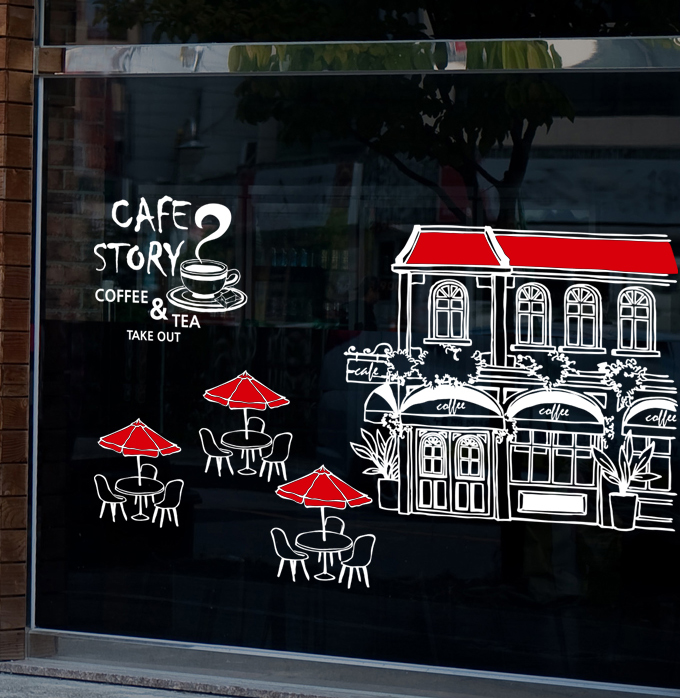 CAFE
STORY
COFFEE
&
TEA
TAKE OUT
cafe
coffee
coffee
coffee